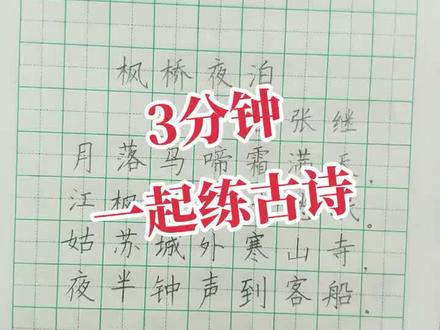 枫桥夜泊
张继
3分钟
月落乌啼霜满
江枫
一起练古诗
姑苏城外寒山寺，
夜半钟声到客船。